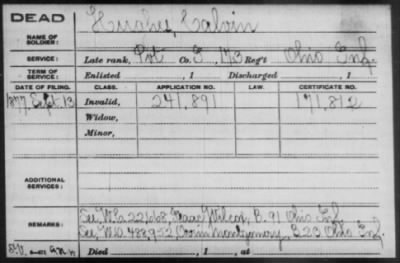 DEAD
NAME OF SOLDIER: Hughes, Calvin
SERVICE: Late rank, Pvt Co. F, 173 Reg't Ohio Inf.
TERM OF SERVICE: Enlisted , 1 Discharged , 1
DATE OF FILING. CLASS. APPLICATION NO. LAW. CERTIFICATE NO.
1877 Sept. 13 Invalid, 241,891 71,812
Widow,
Minor,
ADDITIONAL SERVICES:
REMARKS: See Isaac Wilcox, B. 91 Ohio Inf.
See Montgomery, B 23 Ohio Inf.
Died , 1 , at